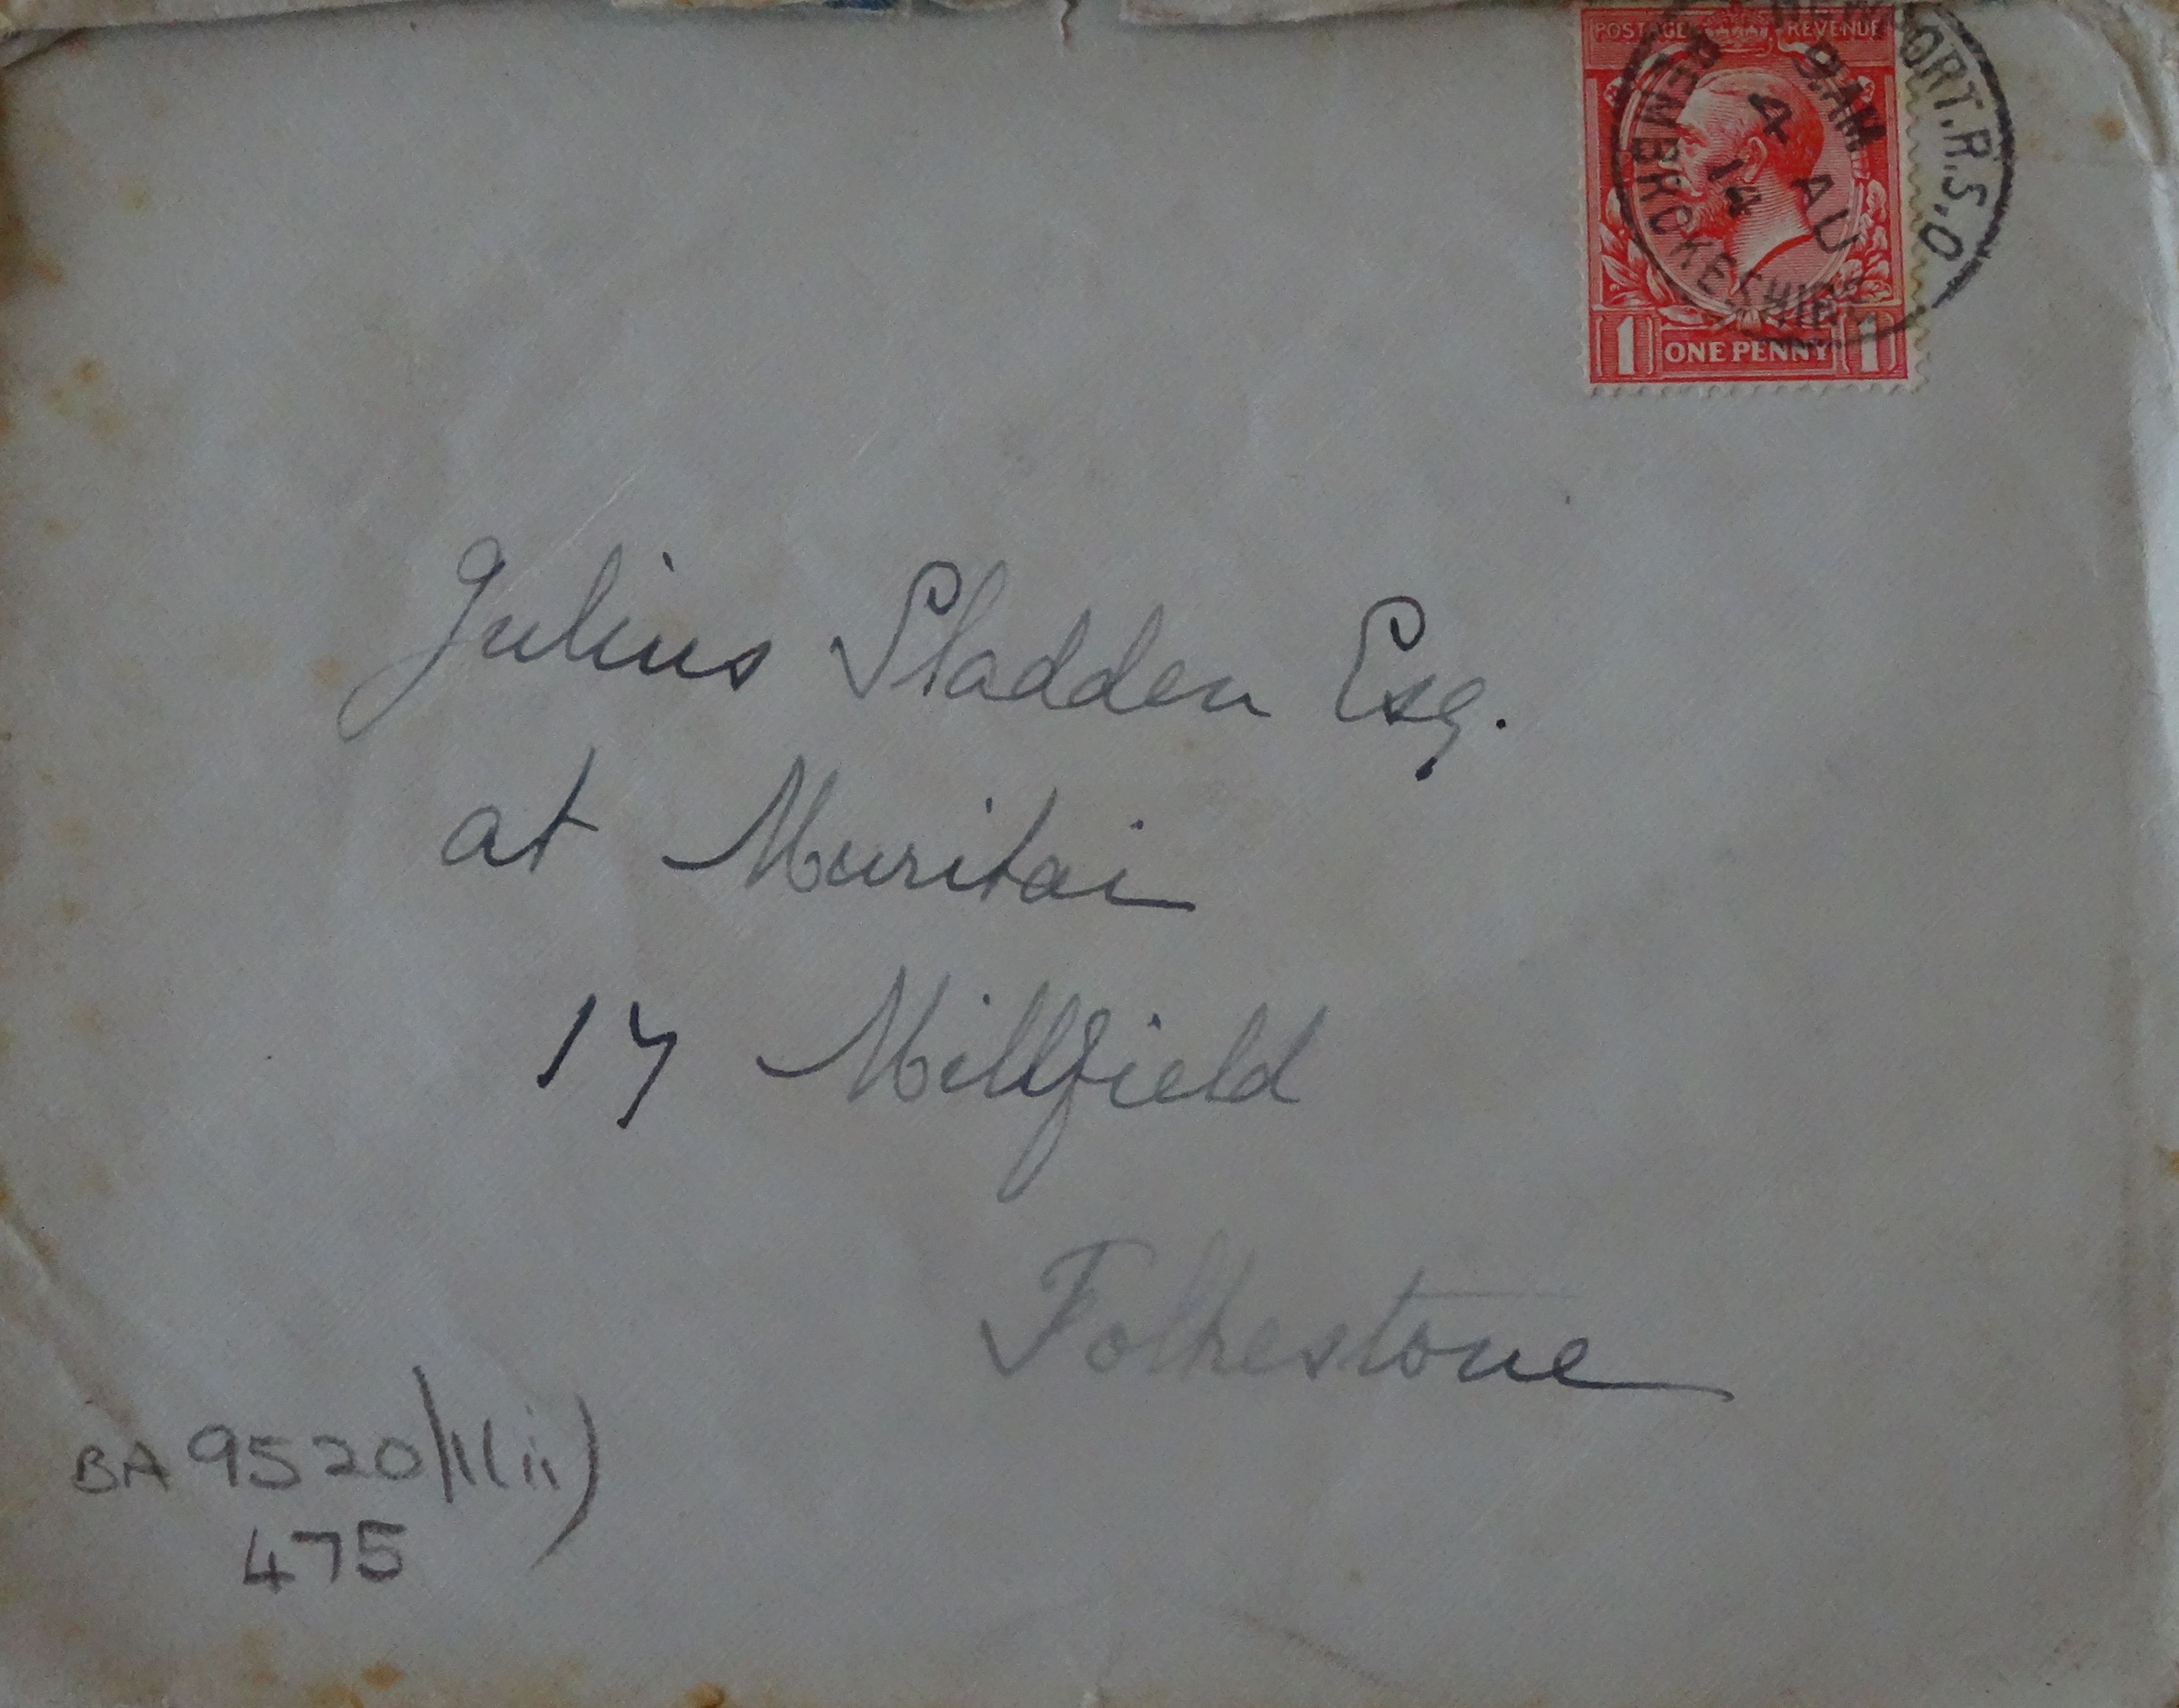 POSTAGE REVENUE
NEWPORT.R.S.O
9.AM
4 AU
14
PEMBROKESHIRE
1 ONE PENNY 1
Julius Sladden Esq.
at Muritai
17 Millfield
Folkestone
BA 9520/11(ii)
475